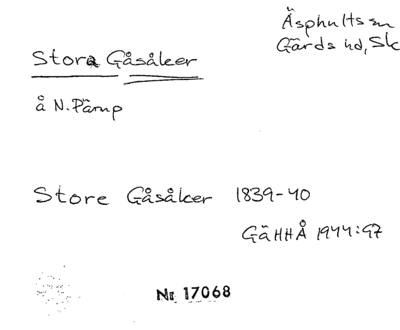 Äsphults sn
Gärds hd, Sk
Stora Gåsåker
å N. Pärup
Store Gåsåker 1839-40
GäHHÅ 1944:97
Nr 17068